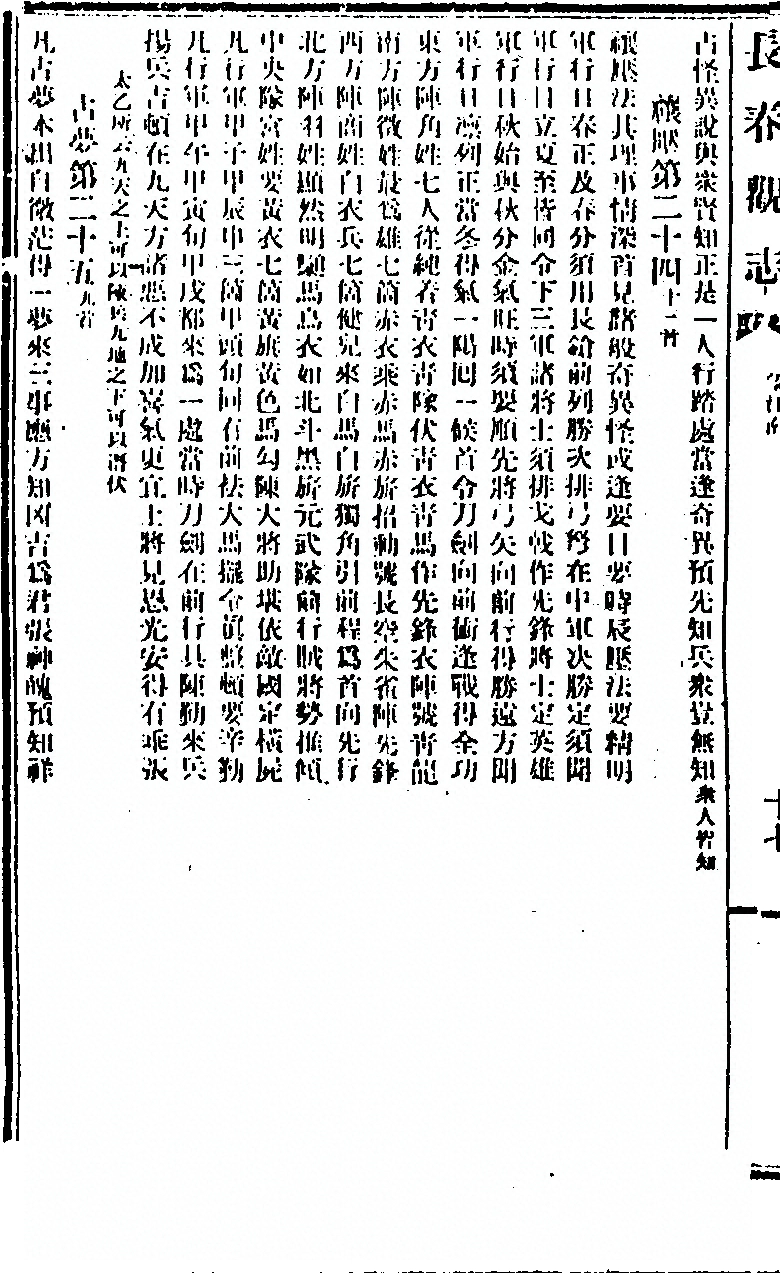 長春觀志
占怪異說與眾賢知正是一人行踏處當逢奇異預先知兵眾豈無知眾人皆知
禳厭第二十四十二首
禳厭法其理事情深首見諸般奇異怪或逢要日要時辰厭法要精明
軍行日春正及春分須用長鎗前列勝次排弓弩在中軍決勝定須聞
軍行日立夏至皆同令下三軍諸將士須排戈戟作先鋒將士定英雄
軍行日秋始與秋分金氣旺時須要順先將弓矢向前行得勝遠方聞
軍行日凜冽正當冬得氣一陽囘一候首令刀劍向前衝逢戰得全功
東方陣角姓七人從純着青衣青隊伏青衣青馬作先鋒衣陣號青龍
南方陣徵姓最爲雄七箇赤衣乘赤馬赤旂招動號長空朱雀陣先鋒
西方陣商姓白衣兵七箇健兒來白馬白旂獨角引前程爲首向先行
北方陣羽姓顯然明驪馬烏衣如北斗黑旂元武隊前行賊將勢推傾
中央隊宮姓要黃衣七箇黃旂黃色馬勾陳大將助堪依敵國定橫屍
凡行軍甲子甲辰申三箇甲頭旬同右前祛大馬擺令眞整頓要辛勤
凡行軍甲午甲寅旬甲戌都來爲一處當時刀劍在前行其陣勦來兵
揚兵吉頓在九天方諸惡不成加喜氣更宜上將見恩光安得有乖張
太乙所云九天之上可以陳兵九地之下可以潛伏
占夢第二十五九首
凡占夢本祖自微茫得一夢來三事應方知凶吉爲君張神醜預知祥
十七